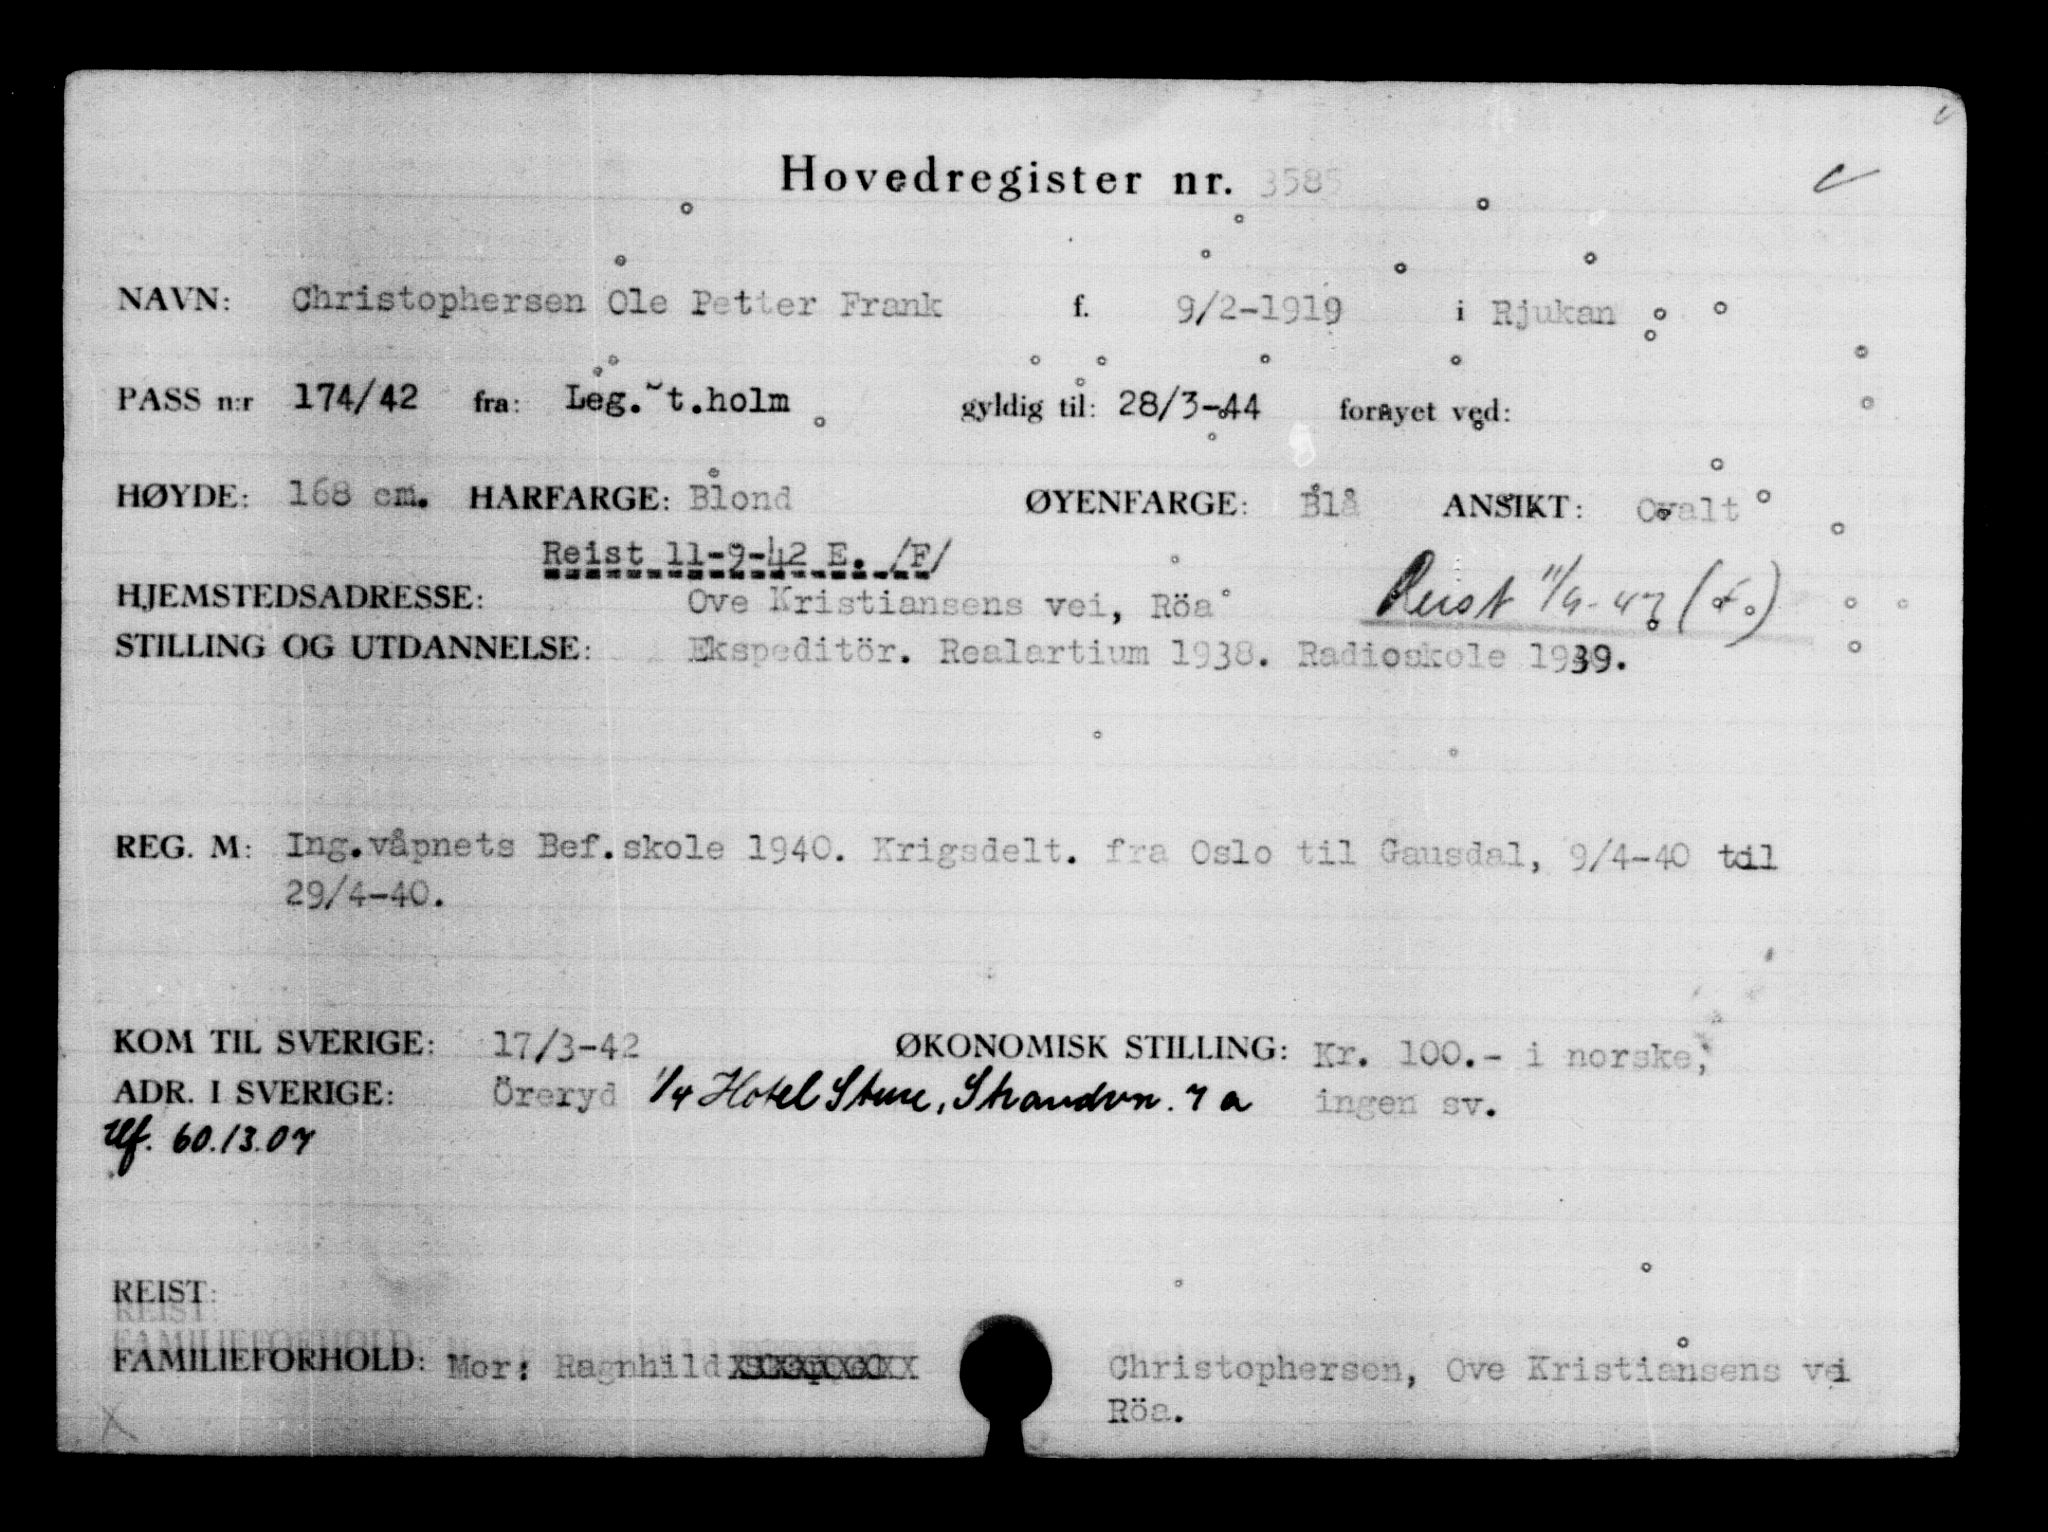 Hovedregister nr. 3585
NAVN: Christophersen Ole Petter Frank f. 9/2-1919 i Rjukan
PASS n:r 174/42 fra: Leg. t.holm gyldig til: 28/3-44 fornyet ved:
HØYDE: 168 cm. HARFARGE: Blond ØYENFARGE: Blå ANSIKT: Ovalt
Reist 11-9-42 E. /F/
HJEMSTEDSADRESSE: Ove Kristiansens vei, Röa Reist 11/9-42 (F.)
STILLING OG UTDANNELSE: Ekspeditör. Realartium 1938. Radioskole 1939.
REG. M: Ing.våpnets Bef.skole 1940. Krigsdelt. fra Oslo til Gausdal, 9/4-40 til
29/4-40.
KOM TIL SVERIGE: 17/3-42 ØKONOMISK STILLING: Kr. 100.- i norske,
ADR. I SVERIGE: Öreryd 1/4 Hotel Sture, Strandvn. 7 a ingen sv.
tlf. 60.13.07
REIST:
FAMILIEFORHOLD: Mor: Ragnhild Christophersen, Ove Kristiansens vei
Röa.